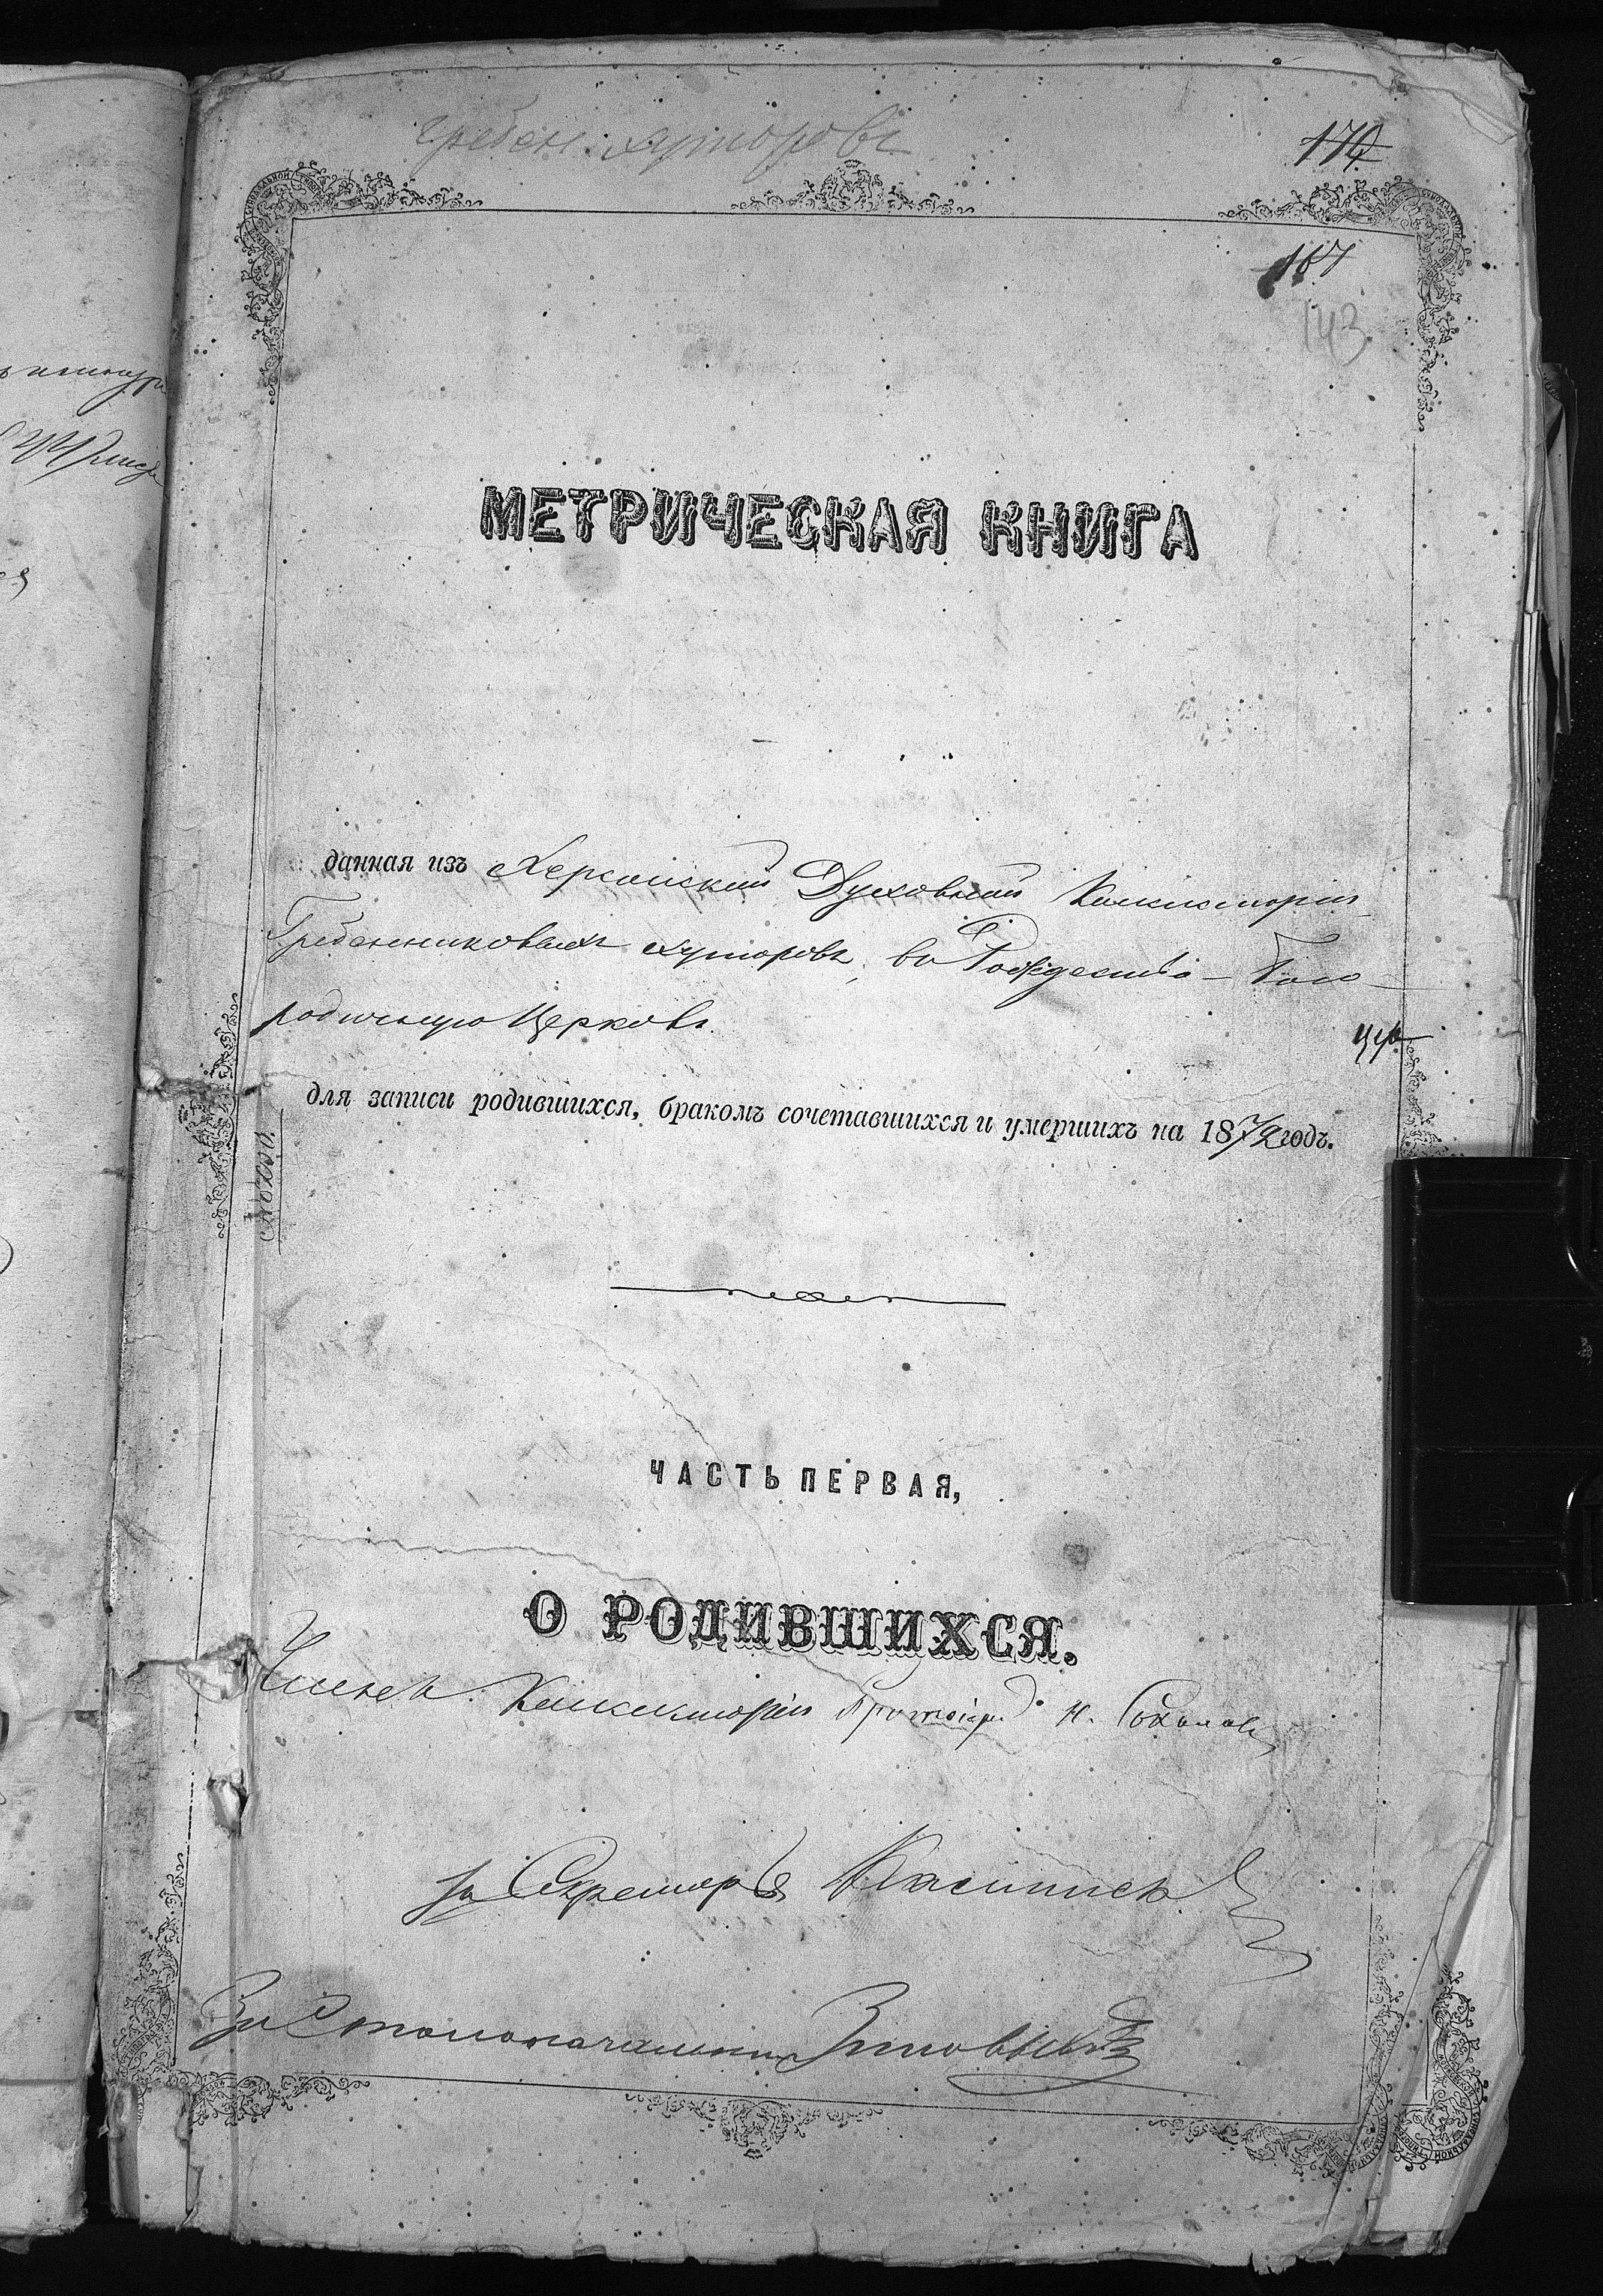 гребен. хуторовъ
170
167
143
МЕТРИЧЕСКАЯ КНИГА
данная изъ Херсонской Духовной Консисторіи
Гребенниковыхъ хуторовъ, въ Рождество-Бого-
родичную Церковь.
для записи родившихся, бракомъ сочетавшихся и умершихъ на 1872 годъ.
ЧАСТЬ ПЕРВАЯ,
О РОДИВШИХСЯ.
Членъ Консисторіи Протоіер. Н. Соколовъ
За Секретаря
За Столоначальника